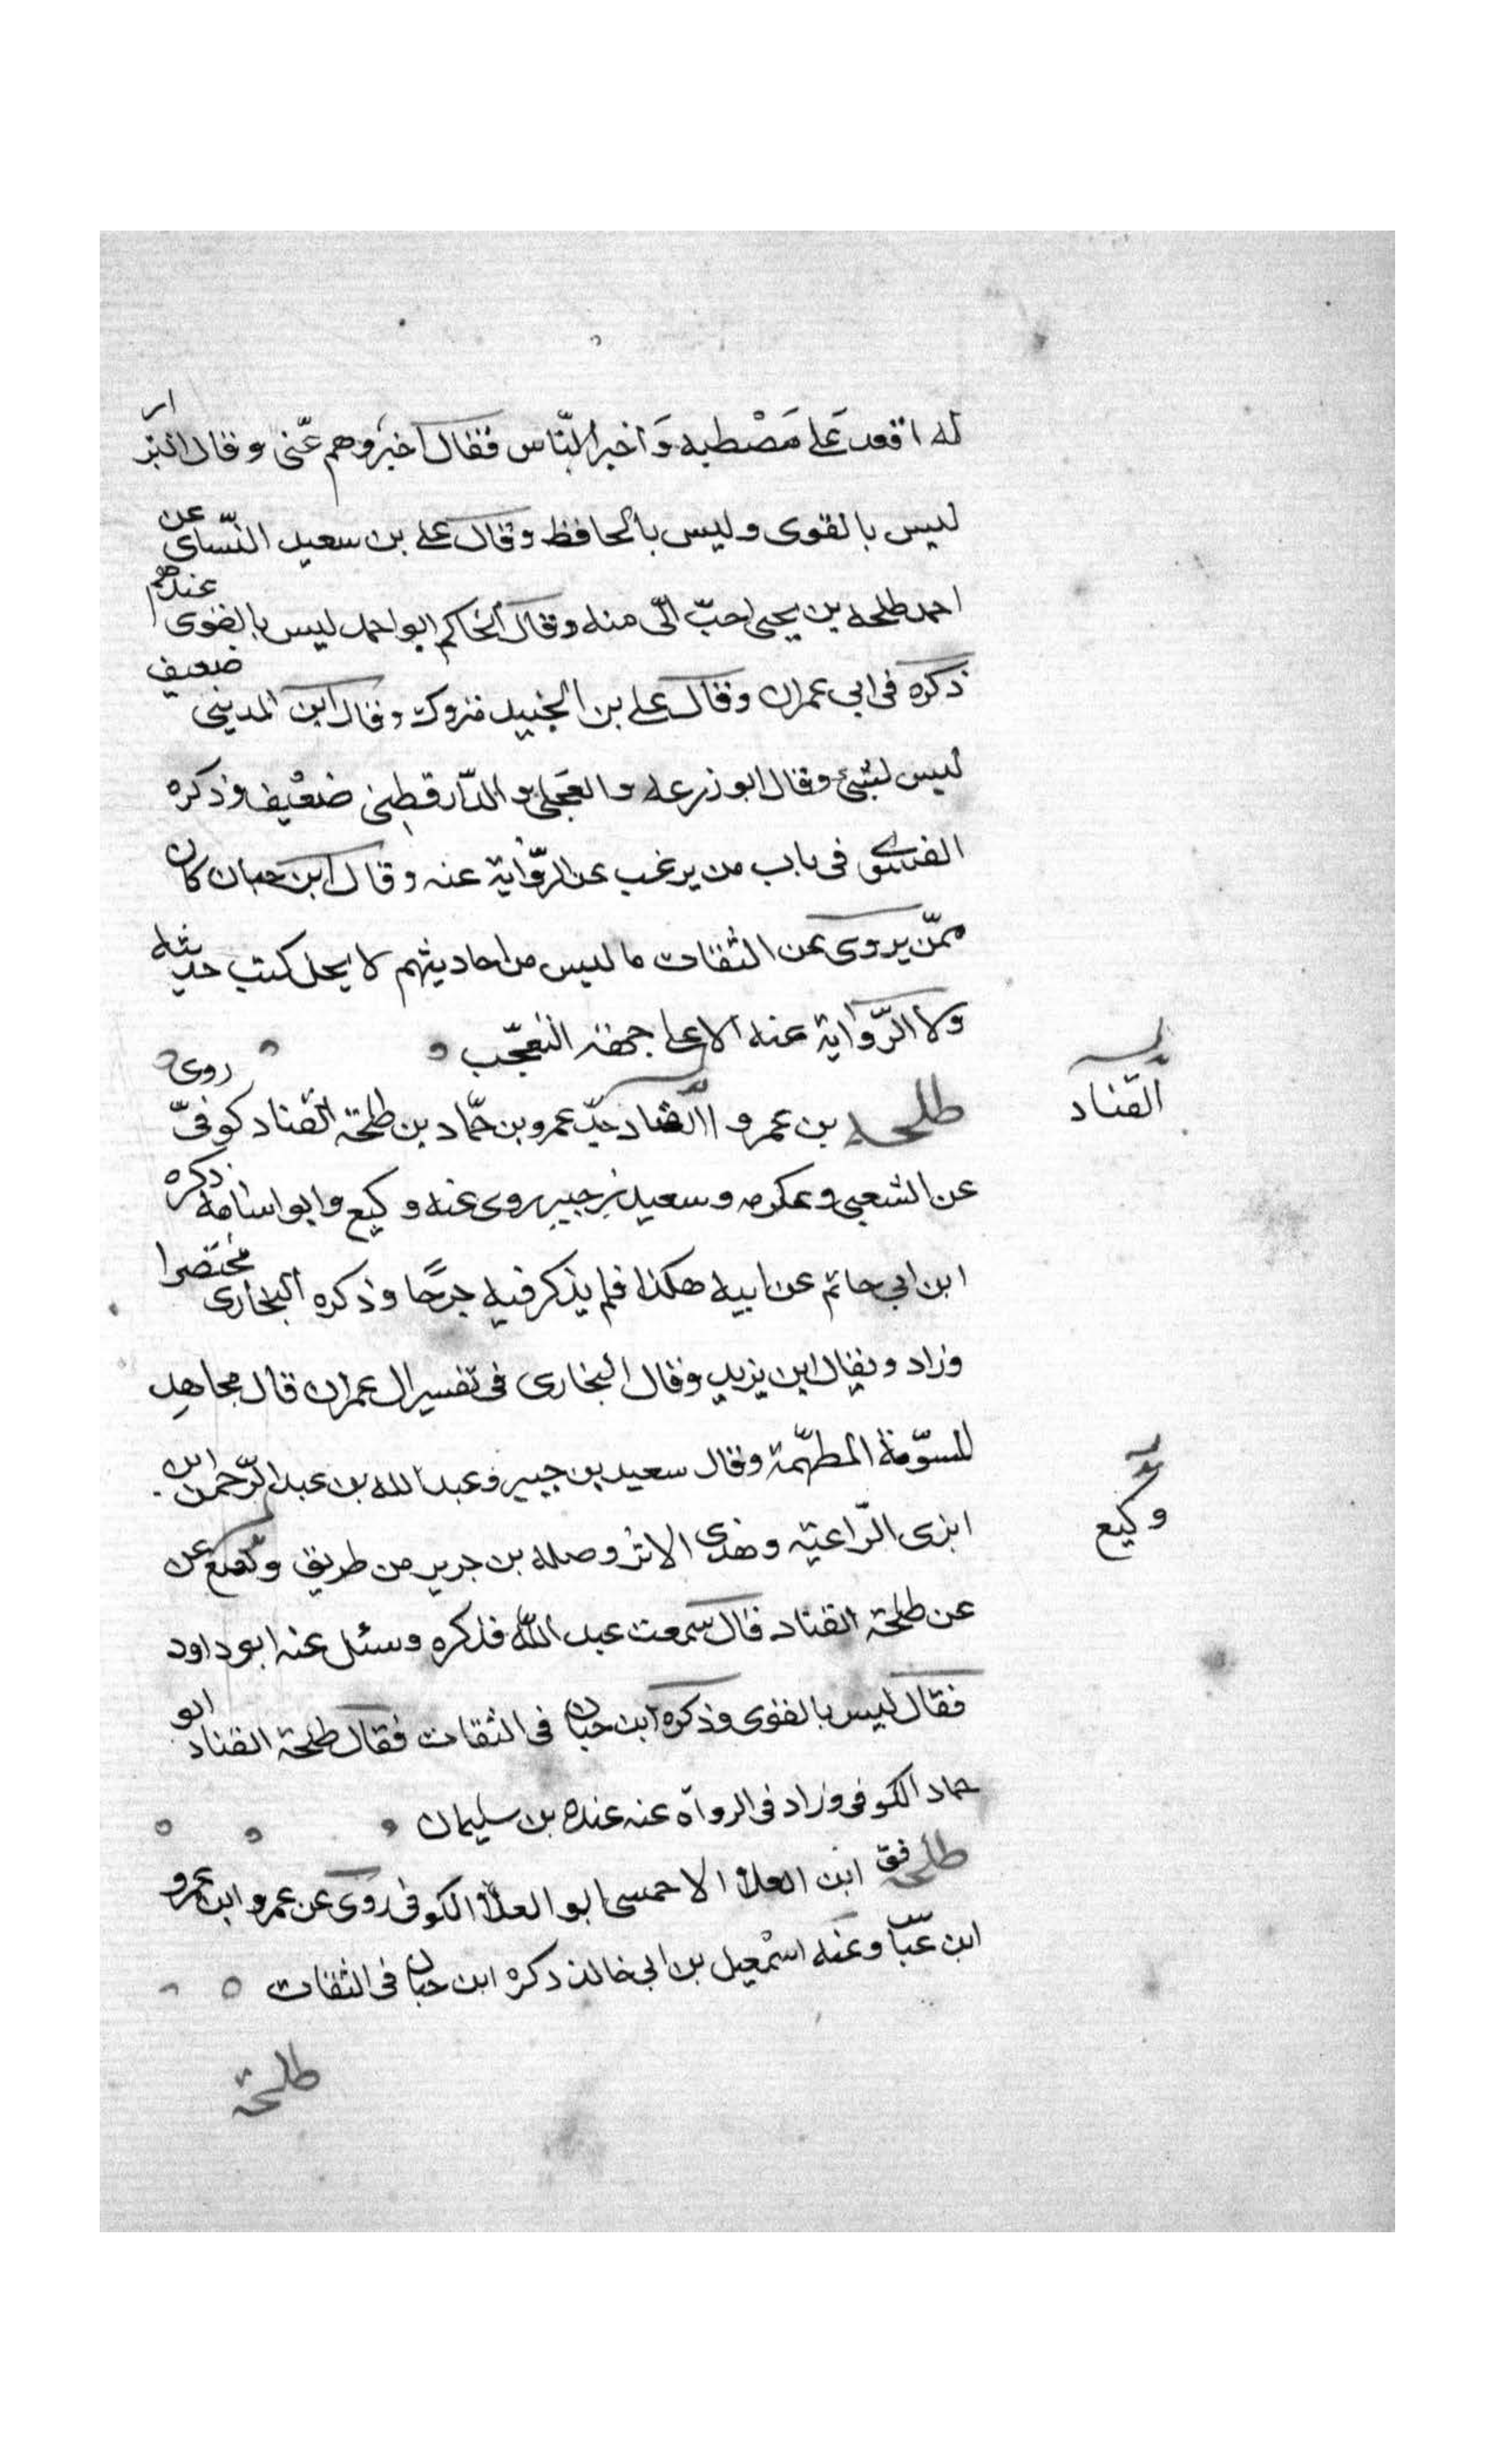 له اقعد عَلى مَصْطبه وَاخبر النّاس فقال اخبَروهم عنّى وقال البزار
ليس بالقوى وليس بالحافظ وقال على بن سعيد النّساى عن
احمد طلحه بن يحيى احبّ الىّ منه وقال الحاكم ابو احمد ليس بالقوى عندهم
ذكره فى ابى عمران وقال على بن الجنيد متروك وقال ابن المدينى ضعيف
ليس بشئ وقال ابو زرعه والعجلى والدّارقطنى ضعيف وذكره
الفسوى فى باب من يرغب عن الرّواية عنه وقال ابن حبان كان
ممّن يروى عن الثقات ما ليس من احاديثهم لا يحل كتب حديثه
ولا الرّواية عنه الا على جهة التعجّب
طلحه بن عمرو القناد جدّ عمرو بن حمّاد بن طلحة القناد كوفىّ روى
القناد
عن الشعبى وعكرمه وسعيد بن جبير روى عنه وكيع وابو اسامه ذكره
ابن ابى حاتم عن ابيه هكذا فلم يذكر فيه جرحًا وذكره البخارى مختصرا
وزاد ويقال ابن يزيد وقال البخارى فى تفسير ال عمران قال مجاهد
المسوّمة المطهّمة وقال سعيد بن جبير وعبد الله بن عبد الرّحمن ابن
ابزى الرّاعية وهذى الاثر وصله بن جرير من طريق وكيع عن
وكيع
عن طلحة القناد قال سمعت عبد اللّه فذكره وسئل عنه ابو داود
فقال ليس بالقوى وذكره ابن حبان فى الثقات فقال طلحة القناد ابو
حماد الكوفى وزاد فى الرواة عنه عنده بن سليمان
طلحة فق ابن العلاء الاحمسى ابو العلاء الكوفى روى عن عمرو ابن عمرو
ابن عبّاس وعنه اسمعيل بن ابى خالد ذكره ابن حبان فى الثقات
طلحة